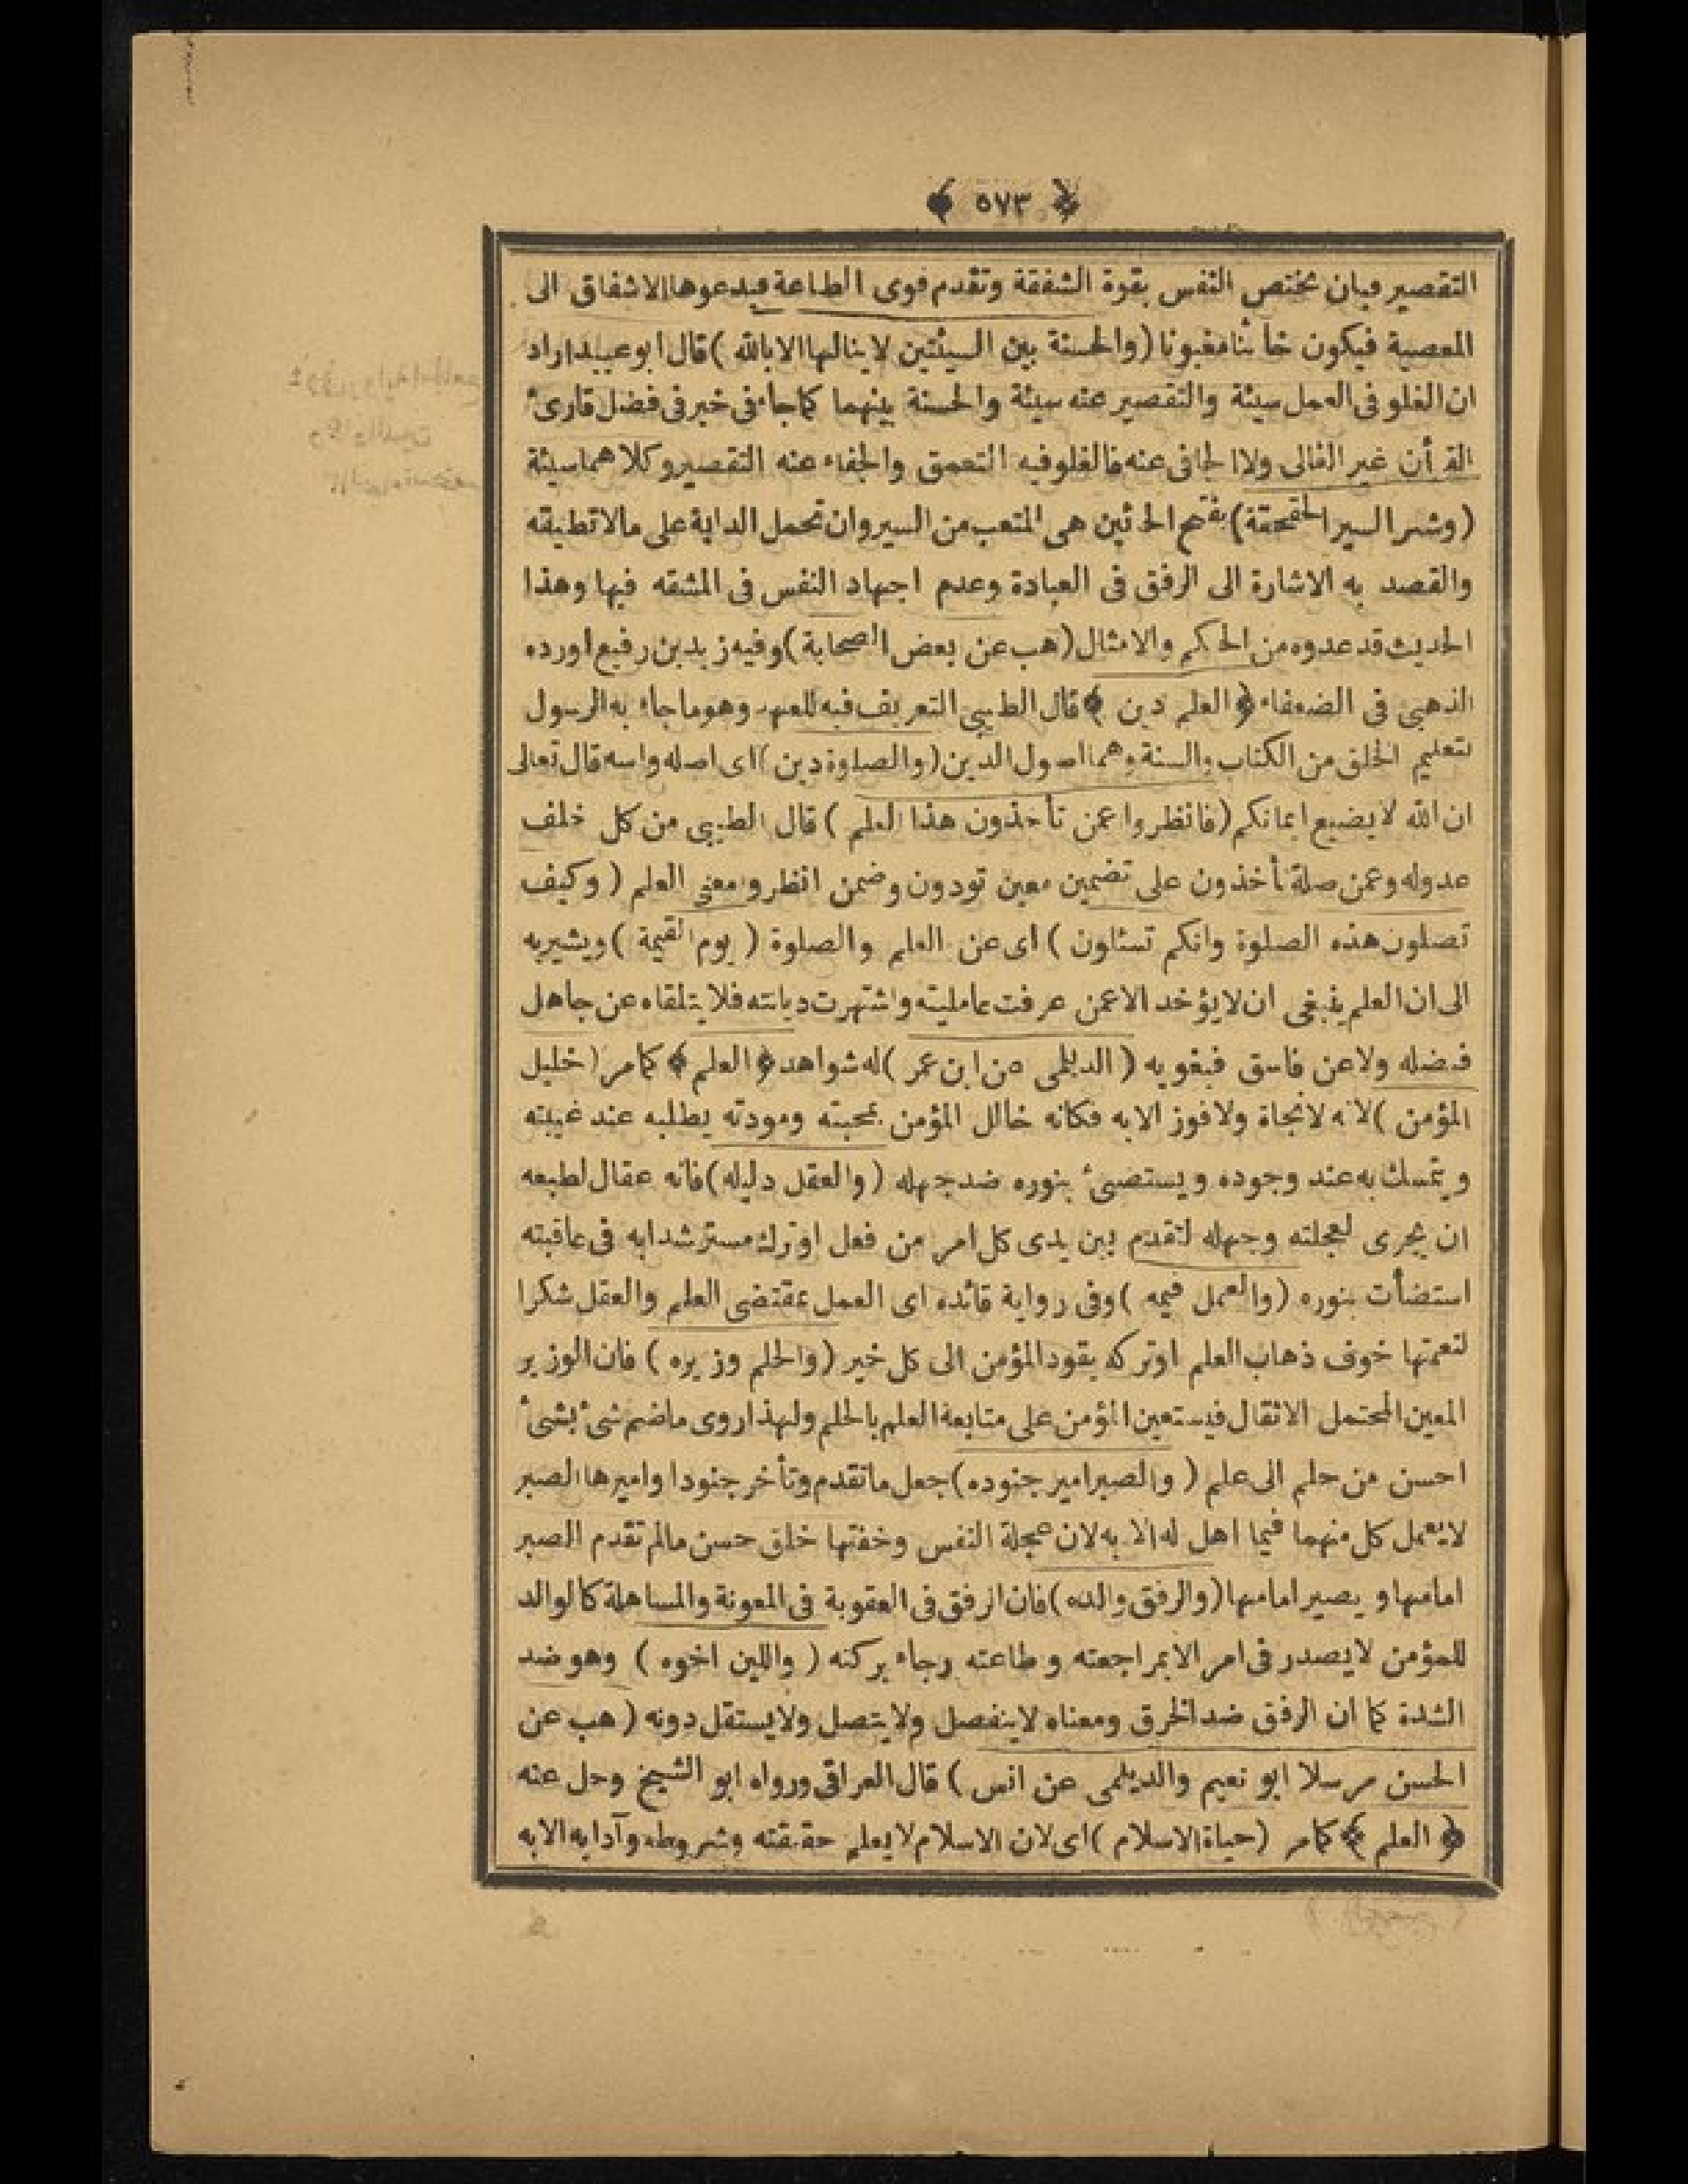 ﴿ ٥٧٣ ﴾
التقصير فبان تختص النفس بقوة الشفقة وتقدم قوى الطاعة فيدعوها الاشفاق الى
المعصية فيكون خائنا مغبونا (والحسنة بين السيئتين لا ينالها الا بالله) قال ابو عبيد اراد
ان الغلو فى العمل سيئة والتقصير عنه سيئة والحسنة بينهما كما جاء فى خبر فى فضل قارئ
القرأن غير الغالى ولا الجافى عنه فالغلو فيه التعمق والجفاء عنه التقصير وكلاهما سيئة
(وشر السير الحقحقة) بفتح الحائين هى المتعب من السير وان تحمل الدابة على مالا تطيقه
والقصد به الاشارة الى الرفق فى العبادة وعدم اجهاد النفس فى المشقه فيها وهذا
الحديث قد عدوه من الحكم والامثال (هب عن بعض الصحابة) وفيه زيد بن رفيع اورده
الذهبى فى الضعفاء ﴿ العلم دين ﴾ قال الطيبى التعريف فيه للعهد وهو ما جاء به الرسول
لتعليم الخلق من الكتاب والسنة وهما اصول الدين (والصلوة دين) اى اصله واسه قال تعالى
ان الله لا يضيع ايمانكم (فانظروا عمن تأخذون هذا العلم) قال الطيبى من كل خلف
عدوله وعمن صلة تأخذون على تضمين معين تودون وضمن انظروا معنى العلم (وكيف
تصلون هذه الصلوة وانكم تسئلون) اى عن العلم والصلوة (يوم القيمة) ويشير به
الى ان العلم ينبغى ان لا يؤخد الا عمن عرفت عامليته واشتهرت ديانته فلا يتلقاه عن جاهل
فيضله ولا عن فاسق فيغويه (الديلمى عن ابن عمر) له شواهد ﴿ العلم ﴾ كما مر (خليل
المؤمن) لانه لا نجاة ولا فوز الا به فكانه خالل المؤمن بمحبته ومودته يطلبه عند غيبته
ويتمسك به عند وجوده ويستضئ بنوره ضد جهله (والعقل دليله) فانه عقال لطبعه
ان يجرى لعجلته وجهله لتقدم بين يدى كل امر من فعل او ترك مسترشدا به فى عاقبته
استضأت بنوره (والعمل قيمه) وفى رواية قائده اى العمل بمقتضى العلم والعقل شكرا
لنعمتها خوف ذهاب العلم او تركه يقود المؤمن الى كل خير (والحلم وزيره) فان الوزير
المعين المحتمل الاثقال فيستعين المؤمن على متابعة العلم بالحلم ولهذا روى ما ضم شئ بشئ
احسن من حلم الى علم (والصبر امير جنوده) جعل ما تقدم وتأخر جنودا واميرها الصبر
لا يعمل كل منهما فيما اهل له الا به لان عجلة النفس وخفتها خلق حسن مالم تقدم الصبر
امامها و يصير امامها (والرفق والده) فان الرفق فى العقوبة فى المعونة والمساهلة كالوالد
للمؤمن لا يصدر فى امر الا بمراجعته وطاعته رجاء بركته (واللين اخوه) وهو ضد
الشدة كما ان الرفق ضد الخرق ومعناه لا ينفصل ولا يتصل ولا يستقل دونه (هب عن
الحسن مرسلا ابو نعيم والديلمى عن انس) قال العراقى ورواه ابو الشيخ وحل عنه
﴿ العلم ﴾ كما مر (حياة الاسلام) اى لان الاسلام لا يعلم حقيقته وشروطه وآدابه الا به